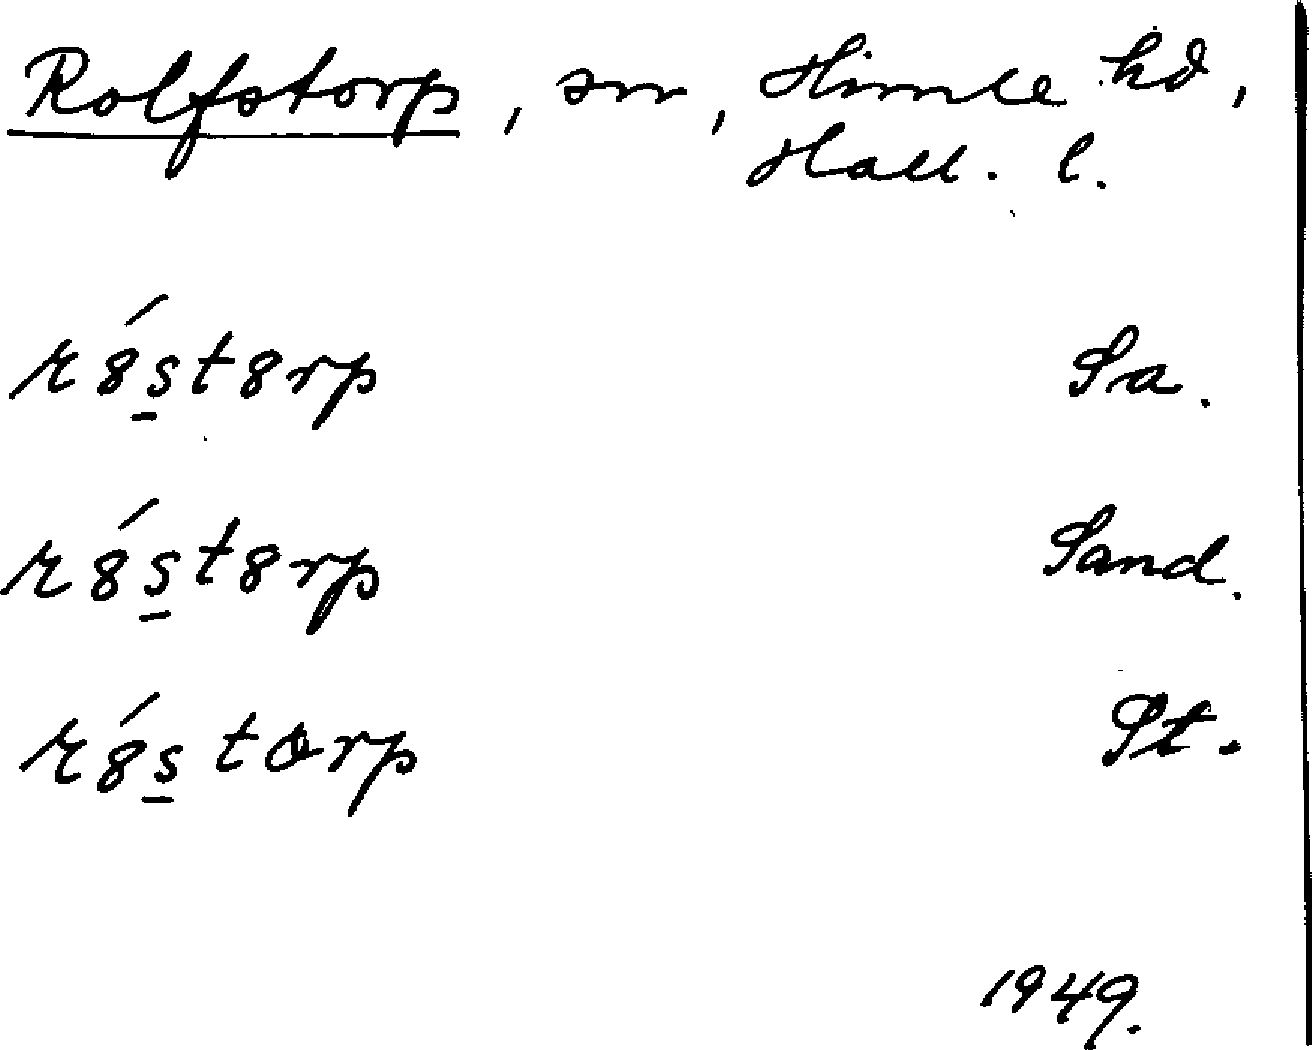 Rolfstorp, sn, Himle hd,
Hall. l.
rȣ́s̲tȣrp Sa.
rȣ́s̲tȣrp Sand.
rȣ́s̲torp St.
1949.